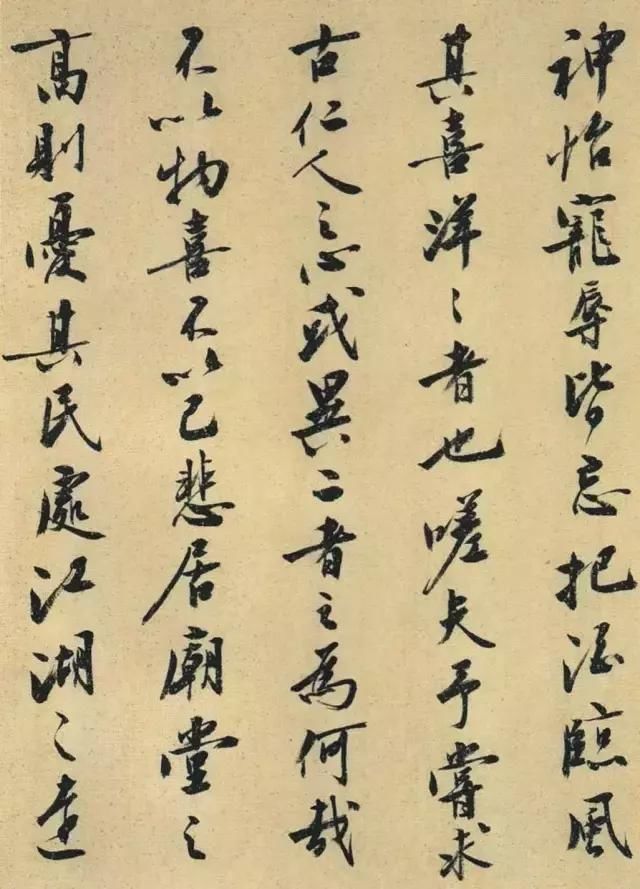 神怡寵辱皆忘把酒臨風
其喜洋〻者也嗟夫予嘗求
古仁人之心或異二者之為何哉
不以物喜不以己悲居廟堂之
高則憂其民處江湖之遠